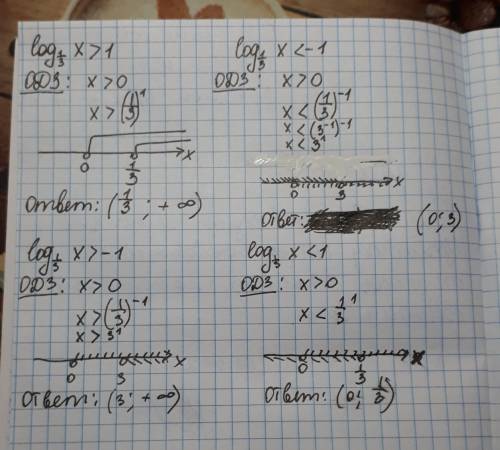 log_{1/3} x > 1
ОДЗ: x > 0
x > (1/3)^1
0 1/3 x
Ответ: (1/3 ; +∞)
log_{1/3} x < -1
ОДЗ: x > 0
x < (1/3)^{-1}
x < (3^{-1})^{-1}
x < 3^1
0 3 x
Ответ: (0; 3)
log_{1/3} x > -1
ОДЗ: x > 0
x > (1/3)^{-1}
x > 3^1
0 3 x
Ответ: (3; +∞)
log_{1/3} x < 1
ОДЗ: x > 0
x < 1/3^1
0 1/3 x
Ответ: (0; 1/3)